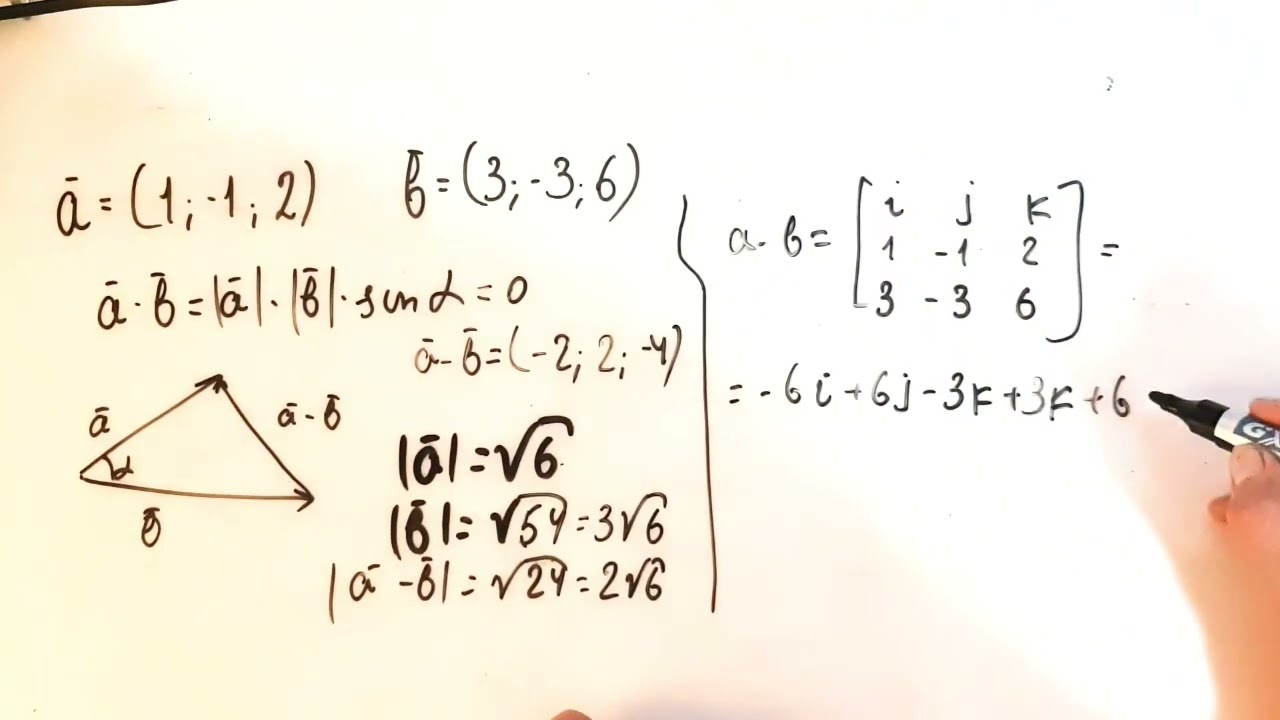 ā = (1; -1; 2)
b̄ = (3; -3; 6)
ā · b̄ = |ā| · |b̄| · sin α = 0
ā - b̄ = (-2; 2; -4)
ā
α
b̄
ā - b̄
|ā| = √6
|b̄| = √54 = 3√6
|ā - b̄| = √24 = 2√6
a · b = [ i j k
1 -1 2
3 -3 6 ] =
= -6i + 6j - 3k + 3k + 6